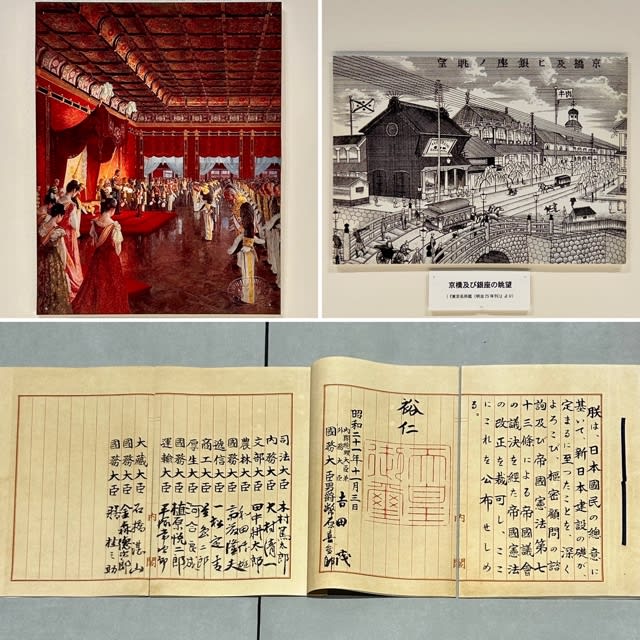 京橋及ヒ銀座ノ眺望
京橋及び銀座の眺望
(『東京名所鑑（明治25年刊）』より)
朕は、日本國民の總意に
基いて、新日本建設の礎が、
定まるに至つたことを、深く
よろこび、樞密顧問の諮
詢及び帝國憲法第七
十三條による帝國議會
の議決を經た帝國憲法
の改正を裁可し、ここ
にこれを公布せしめ
る。
內閣
裕仁
天皇御璽
昭和二十一年十一月三日
內閣總理大臣兼
外務大臣 吉田茂
國務大臣 男爵 幣原喜重郎
司法大臣 木村篤太郎
內務大臣 大村清一
文部大臣 田中耕太郎
農林大臣 和田博雄
國務大臣 斎藤隆夫
遞信大臣 一松定吉
商工大臣 星島二郎
厚生大臣 河合良成
國務大臣 植原悅二郎
運輸大臣 平塚常次郎
大藏大臣 石橋湛山
國務大臣 金森德次郎
國務大臣 膳桂之助
內閣